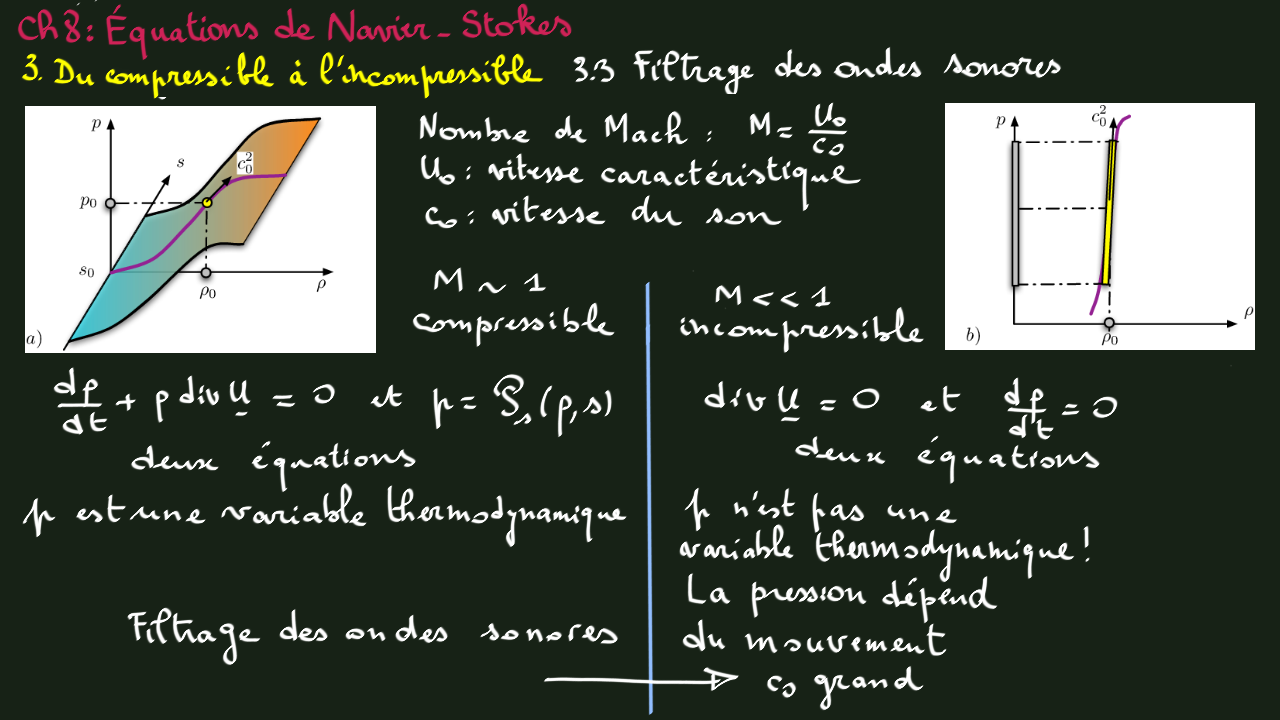 Ch 8: Équations de Navier-Stokes
3. Du compressible à l'incompressible 3.3 Filtrage des ondes sonores
p
s
c₀²
p₀
s₀
ρ₀
ρ
a)
Nombre de Mach : M = U₀/c₀
U₀ : vitesse caractéristique
c₀ : vitesse du son
p
c₀²
ρ
b)
ρ₀
M ~ 1
compressible
dρ/dt + ρ div U = 0 et p = 𝒫ₛ(ρ,s)
deux équations
p est une variable thermodynamique
M << 1
incompressible
div U = 0 et dρ/dt = 0
deux équations
p n'est pas une
variable thermodynamique !
La pression dépend
du mouvement
Filtrage des ondes sonores
c₀ grand